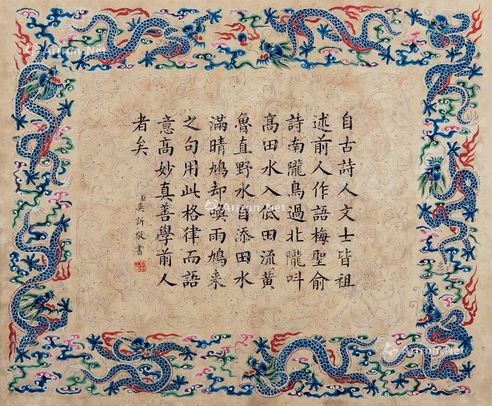 自古詩人文士皆祖
述前人作語梅聖俞
詩南隴鳥過北隴叫
高田水入低田流黄
魯直野水自添田水
滿晴鳩却喚雨鳩来
之句用此格律而語
意高妙真善學前人
者矣
訢敬書
Artron.Net